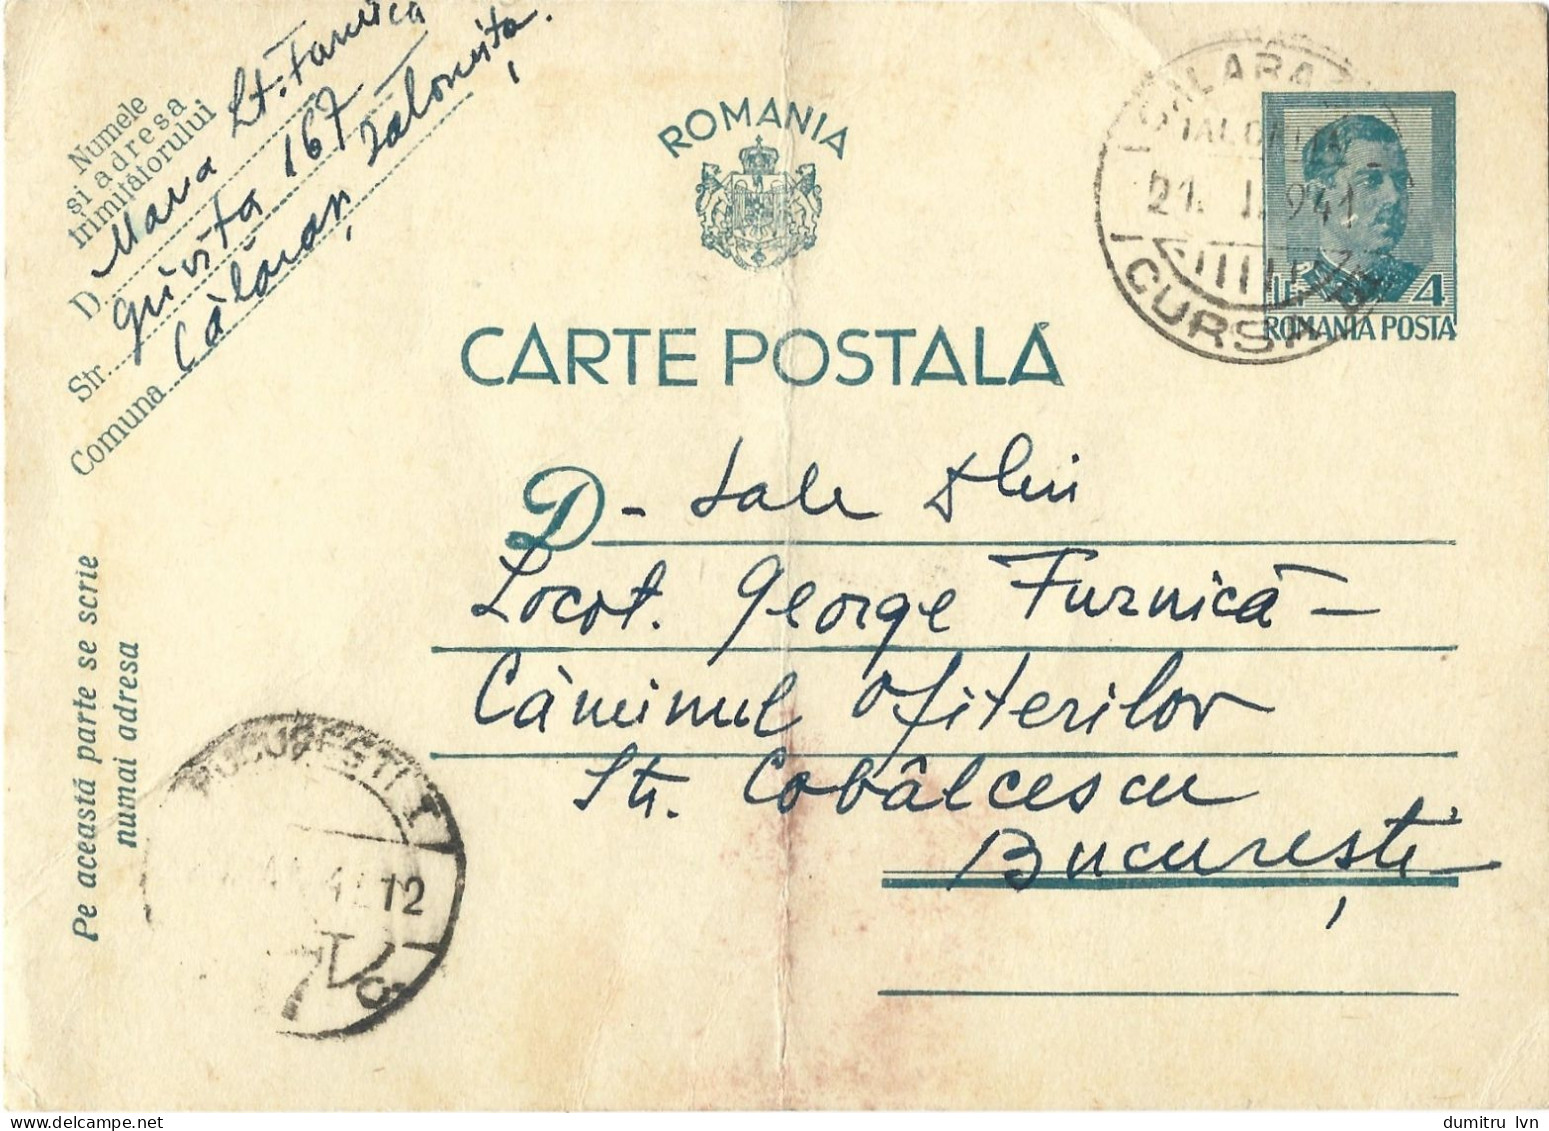 Numele
și adresa
trimițătorului
D. Mara Lt. Furnică
Str. Grivița 167
Comuna Călărași, Ialomița.
ROMANIA
CARTE POSTALĂ
CALARAȘI
IALOMIȚA
21. I. 941
CURSA
LEI 4
ROMANIA POSTA
D-sale Dlui
Locot. George Furnică -
Căminul Ofiterilor
Str. Cobâlcescu
București
Pe această parte se scrie
numai adresa
BUCUREȘTI I
41 12
dumitru lvn